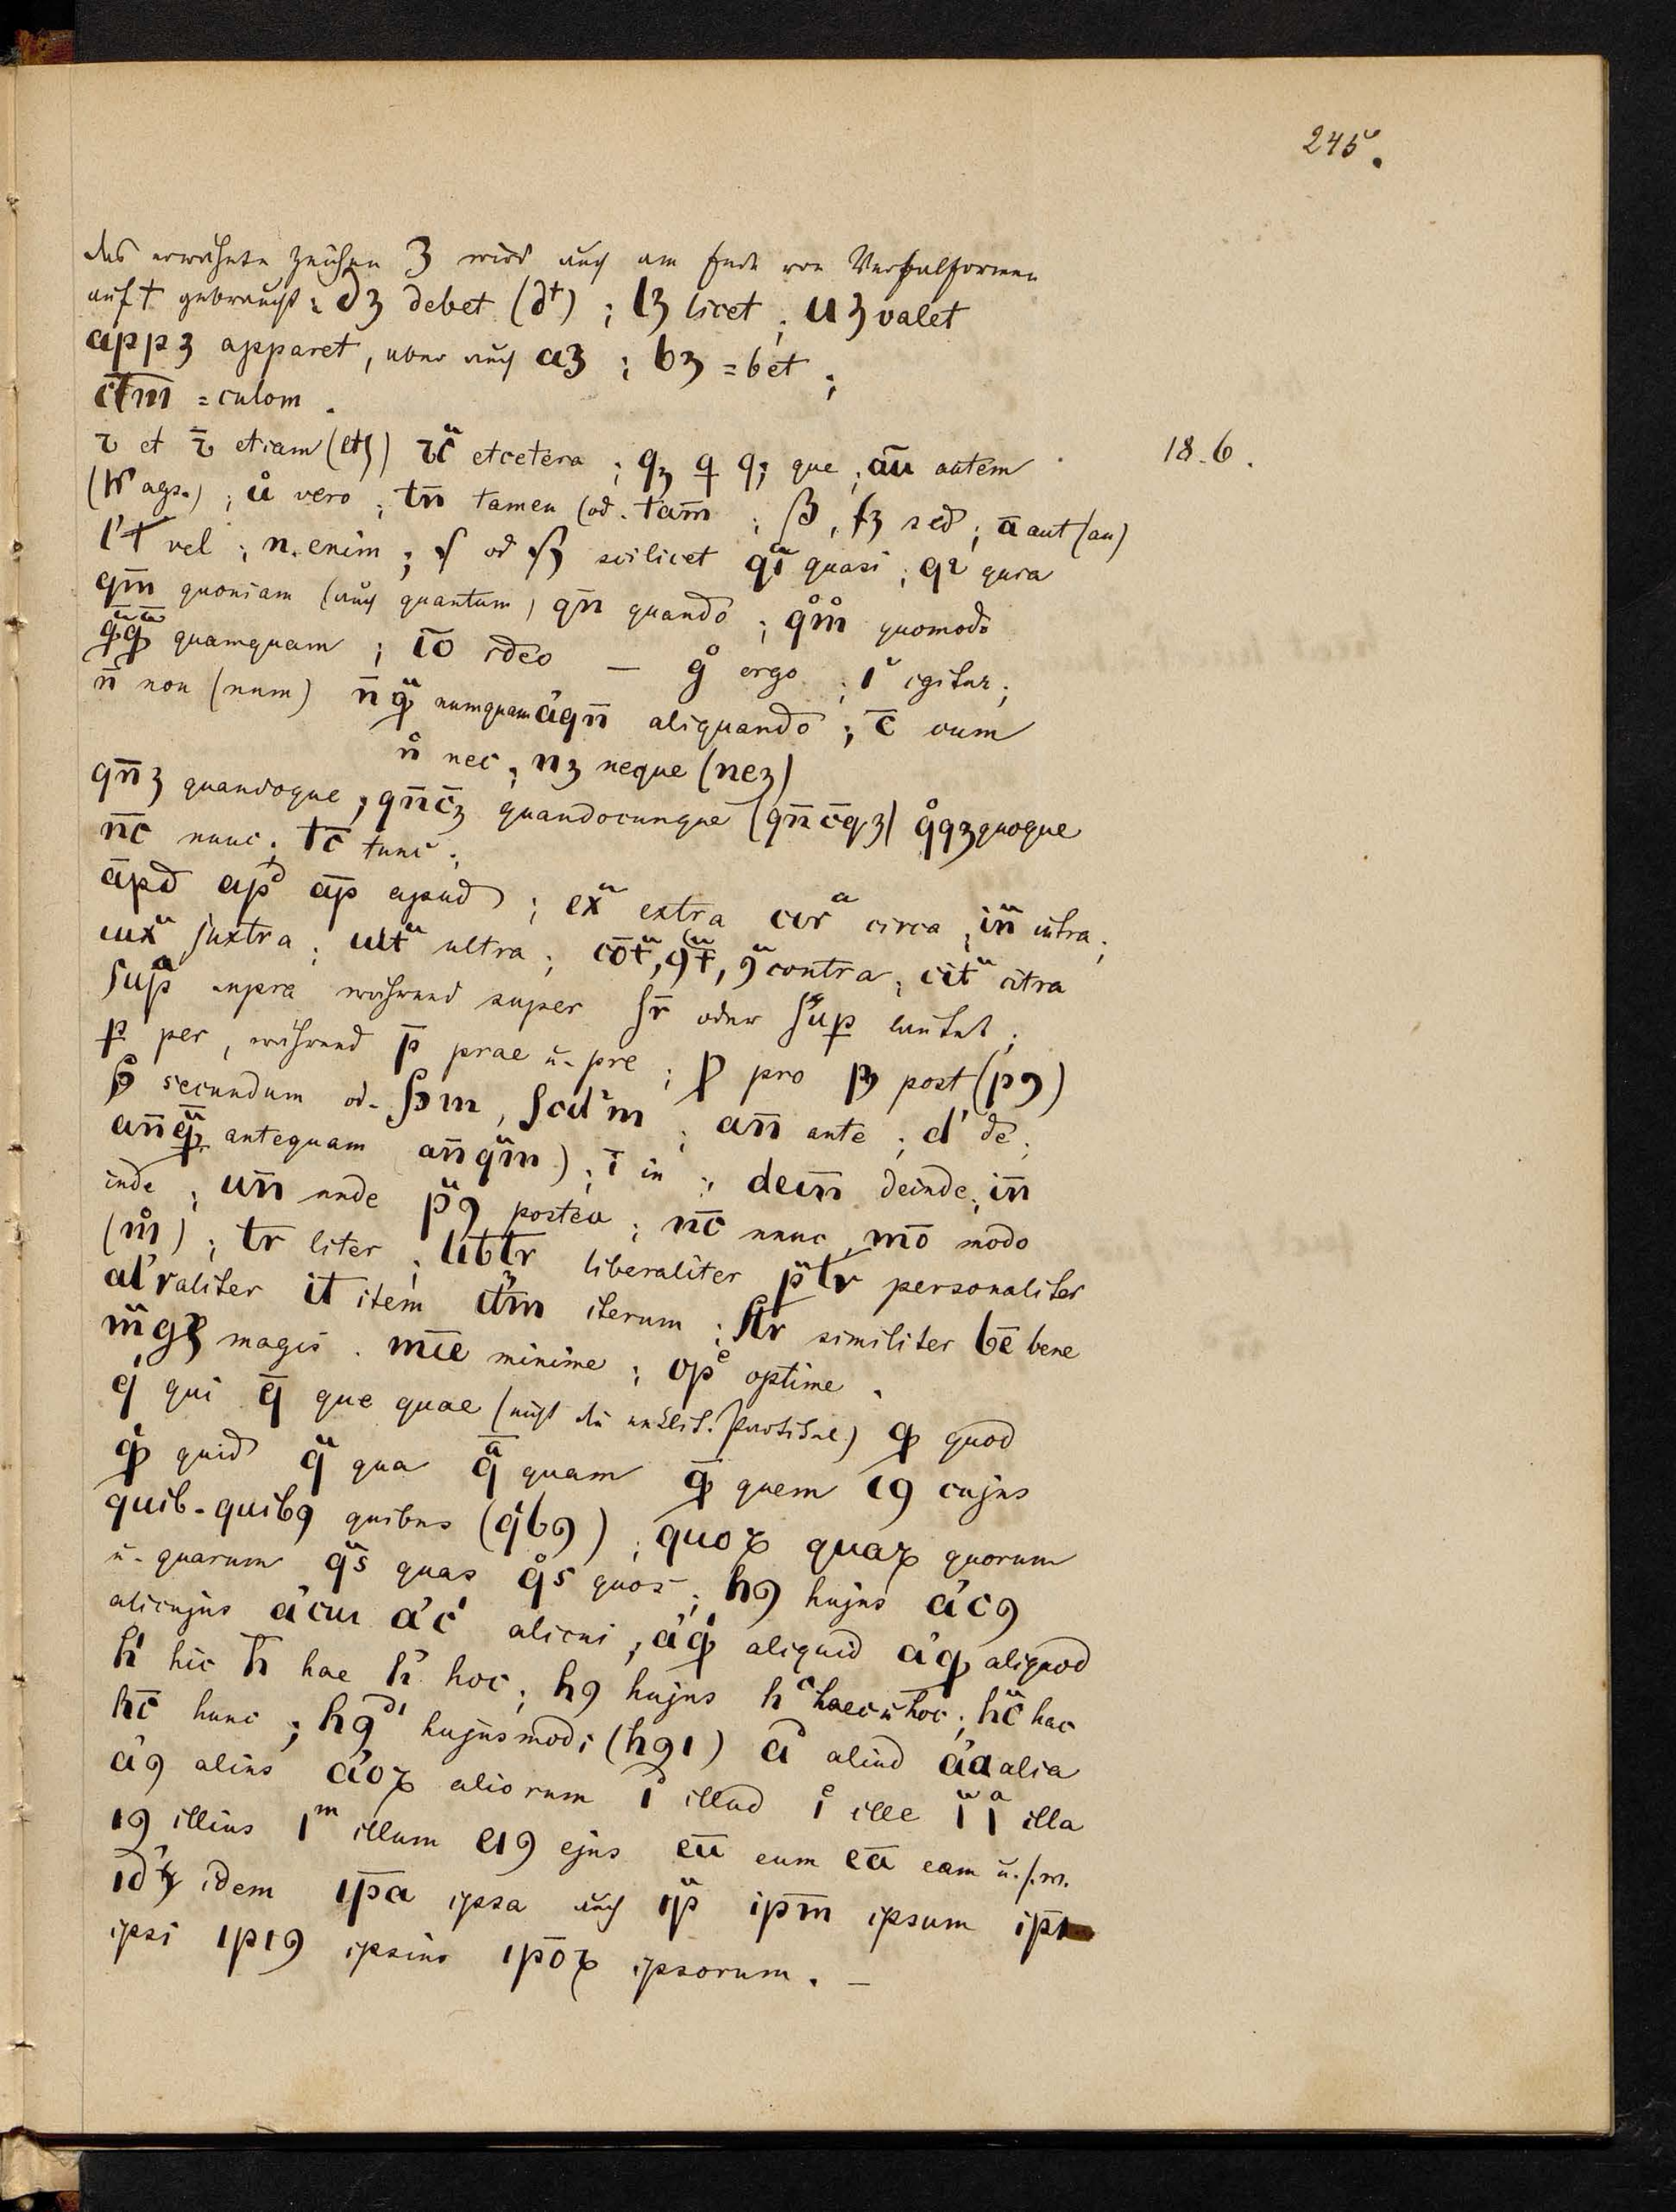 245.
das erwähnte Zeichen ꝫ wird auch am Ende von Verbalformen
auf t gebraucht: dꝫ debet (dᵗ) ; lꝫ licet ; uꝫ valet
appꝫ apparet, aber auch aꝫ ; bꝫ = bet ;
c̄t̄m̄ = culom .
18.6.
⁊ et ⁊̄ etiam (etꝫ) ⁊cᵃ etcetera ; qꝫ ꝗ q; que ; aū autem
(ags.) ; uͦ vero ; tn̄ tamen (od. tam̄ ; ẞ, ſꝫ sed ; ā aut (au)
l' ł vel ; n. enim ; ſ od ſꝫ scilicet qᵃi quasi ; q² quia
qm̄ quoniam (auch quantum) qn̄ quando ; qͦmͦ quomodo
ꝙᵃꝙᵃ quamquam ; īo ideo — gͦ ergo ; i' igitur ;
n̄ non (num) n̄ ꝙᵃ numquam a'qn̄ aliquando ; c̄ cum
nͨ nec ; nꝫ neque (neꝫ)
qn̄ꝫ quandoque ; qn̄c̄ꝫ quandocunque (qn̄c̄qꝫ) qͦqꝫ quoque
nc̄ nunc ; tc̄ tunc ;
āpd apᵈ āp apud ; exᵃ extra cirᵃ circa ; inᵃ intra ;
iuxᵃ juxtra ; ultᵃ ultra ; cōtᵃ, ꝯtᵃ, ꝯᵃ contra ; citᵃ citra
ſupᵃ supra während super ſr̄ oder ſuꝑ lautet ;
ꝑ per, während p̄ prae u. pre ; ꝓ pro pꝫ post (pꝯ)
secundum od. ſꝫm, ſcd'm ; an̄ ante ; d' de ;
an̄ꝙᵃ antequam an̄qᵃm) ; ī in ; dein̄ deinde ; in̄
inde ; un̄ unde pᵃꝯ postea ; nc̄ nunc, mō modo
(mͦ) ; tr liter ; libtr liberaliter pᵃlr personaliter
al'r aliter it item it'm iterum ; ſlr similiter bē bene
mᵃgꝫ magis . mīe minime ; opᵉ optime .
qⁱ qui q̄ que quae (nicht die Partikel) ꝙ quod
ꝙⁱ quid qᵃ qua q̄ᵃ quam ꝙ̄ quem cꝯ cujus
quib-quibꝯ quibus (qⁱbꝯ) ; quoꝝ quaꝝ quorum
u. quarum qᵃs quas qͦs quos ; hꝯ hujus a'cꝯ
alicujus a'cui a'cⁱ alicui ; a'ꝙⁱ aliquid a'ꝙ aliquod
hⁱ hic h̄ hae h' hoc ; hꝯ hujus hᶜ haec u hoc ; hᵃc hac
hc̄ hunc ; hꝯᵈⁱ hujusmodi (hꝯı) aᵈ aliud a'a alia
a'ꝯ alius a'oꝝ aliorum iᵈ illud iᵉ ille iᵃ lᵃ illa
ıꝯ illius lᵐ illum eıꝯ ejus eū eum eā eam u.s.w.
idꝫ idem ip̄a ipsa auch ipᵃ ip̄m ipsum ip̄ı
ipsi ıpıꝯ ipsius ıp̄oꝝ ipsorum . —